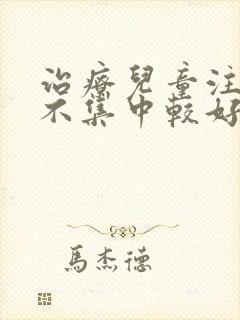 治療兒童注
不集中較好
馬杰德